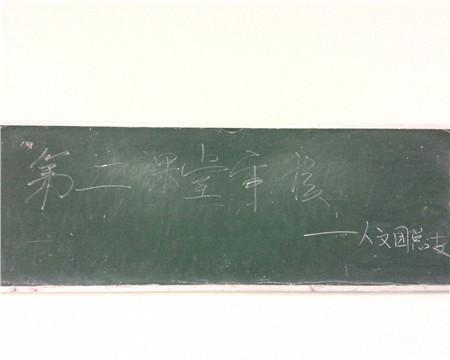 第二课堂审核
——人文团总支